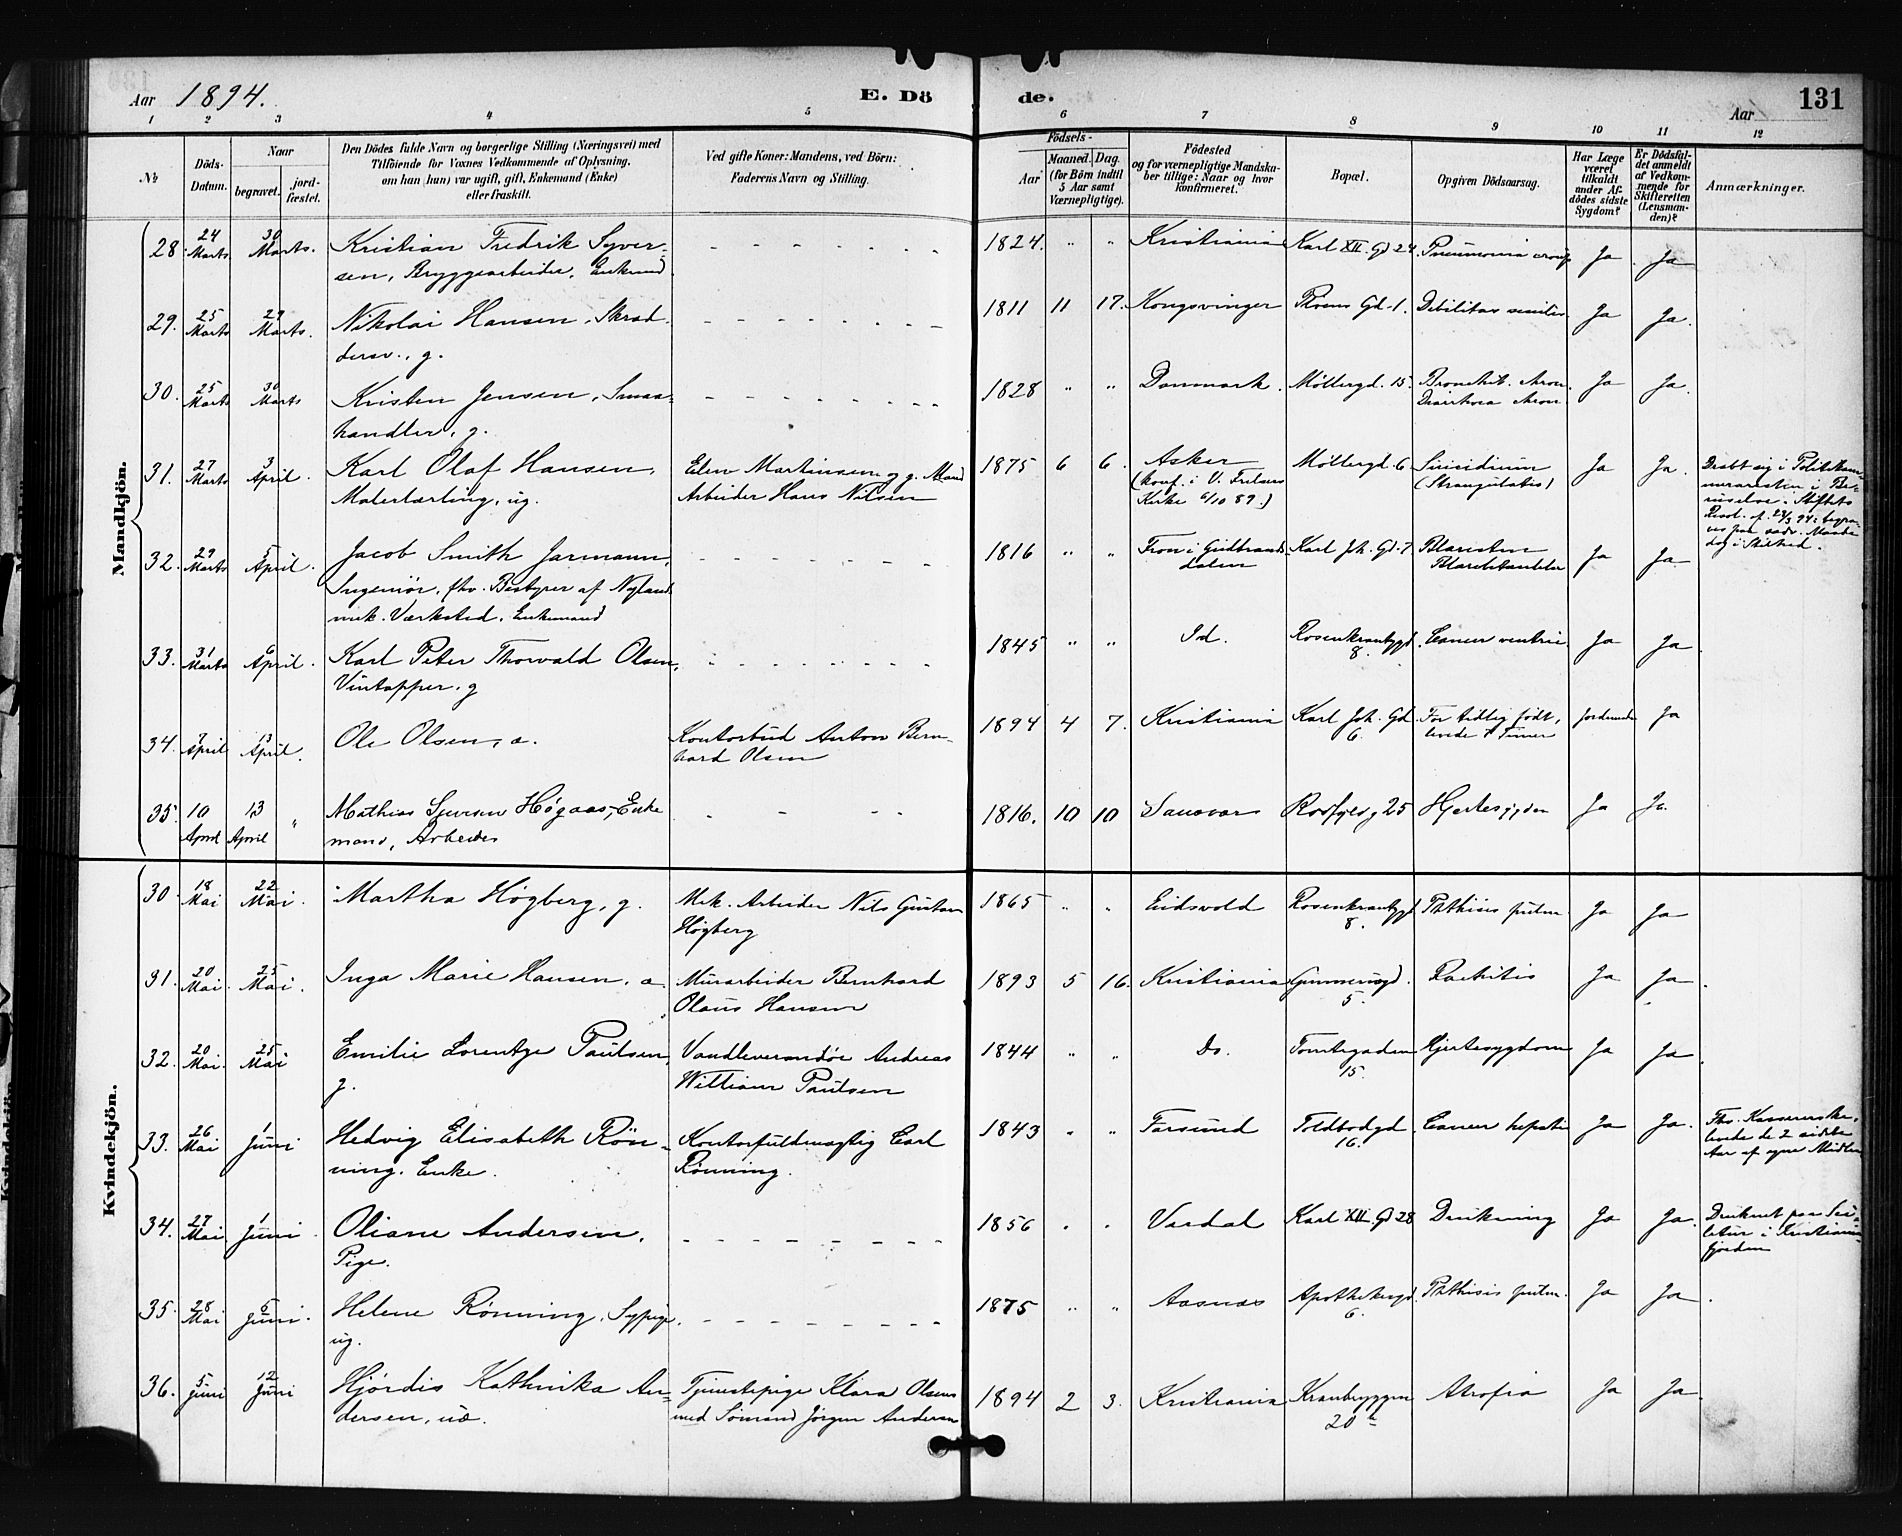 Aar 1894. E. Dö de. 131
Aar
1 2 3 4 5 6 7 8 9 10 11 12
№
Döds-
Datum.
Naar
begravet.
jord-
fæstet.
Den Dödes fulde Navn og borgerlige Stilling (Næringsvei) med
Tilföiende for Voxnes Vedkommende af Oplysning,
om han (hun) var ugift, gift, Enkemand (Enke)
eller fraskilt.
Ved gifte Koner: Mandens, ved Börn:
Faderens Navn og Stilling.
Födsels-
Aar
Maaned. Dag.
(for Börn indtil
5 Aar samt
Værnepligtige).
Födested
og for værnepligtige Mandska-
ber tillige: Naar og hvor
konfirmeret.
Bopæl.
Opgiven Dödsaarsag.
Har Læge
været
tilkaldt
under Af-
dödes sidste
Sygdom?
Er Dödsfal-
det anmeldt
af Vedkom-
mende for
Skifteretten
(Lensman-
den)?
Anmærkninger.
Mandkjön.
28. 24 Marts 30 Marts. Kristian Fredrik Syver-
sen, Bryggearbeider, Enkemd.
1824. " " Kristiania Karl XII. Gd 24. Pneumonia croup Ja Ja
29. 25 Marts 29 Marts. Nikolai Hansen, Skræd-
dersv., g.
1811 11 17. Kongsvinger Gd. 1. Debilitas senilis Ja Ja.
30. 25 Marts 30 Marts Kristen Jensen, Smaa-
handler, g.
1828 " " Danmark. Møllergd. 15. Bronchit. chron.
Diarrhoea chron. Ja Ja.
31. 27 Marts 3 April. Karl Olaf Hansen,
Malerlærling, ug.
Elen Martinsen og g. Mand
Arbeider Hans Nilsen
1875 6 6. Asker
(konf. i V. Frelsers
Kirke 6/10 89.)
Møllergd. 6 Suicidium
(Strangulatio) Ja Ja.
Dræbt sig i Politikam-
merarresten i Be-
ruselse. Stiftets
Resol. af 28/3 94: begra-
ves paa sædv. Maade
dog i Stilhed.
32. 29 Marts 5 April. Jacob Smith Jarmann,
Ingeniør, fhv. Bestyrer af Nylands
mek. Værksted, Enkemand
1816 " " Fron i Gudbrands-
dalen Karl Joh. Gd. 7. Blæresten
Ja Ja
33. 31 Marts 6 April. Karl Peter Thorvald Olsen,
Vintapper. g
1845 " " Id. Rosenkrantzgd.
8. Cancer ventric Ja Ja
34. 7 April 13 April. Ole Olsen, æ.
Kontorbud Anton Bern-
hard Olsen
1894 4 7. Kristiania Karl Joh. Gd.
6. For tidlig født,
levede 7 Timer Jordemoder Ja
35. 10 April 13 April " Mathias Syversen Høgaas, Enke
mand, Arbeider
1816. 10 10 Sandsvær 25 Hjertesygdom Ja Ja.
Kvindekjön.
30. 18 Mai 22 Mai. Martha Högberg, g.
Mek. Arbeider Nils Gustav
Högberg
1865 " " Eidsvold Rosenkrantzgd
8. Phthisis pulm. Ja Ja
31. 20 Mai. 25 Mai. Inga Marie Hansen, æ.
Murarbeider Bernhard
Olaus Hansen
1893 5 16. Kristiania Grønnensgd.
5. Rachitis Ja Ja
32. 20 Mai. 25 Mai Emilie Lorentze Paulsen,
g.
Vandleverandør Andreas
William Paulsen
1844 " " Do. Tomtegaden
15. Hjertesygdom Ja Ja
33. 26 Mai 1 Juni Hedvig Elisabeth Røn-
ning, Enke.
Kontorfuldmægtig Carl
Rønning.
1843 " " Farsund Toldbodgd.
16. Cancer hepatis Ja Ja.
levede de 2 sidste
Aar af egne Midler
34. 27 Mai 1 Juni. Oliane Andersen,
Pige.
1856 " " Vardal Karl XII. Gd 28 Drukning Ja Ja.
Druknet paa Sei-
letur i Kristiania-
fjorden
35. 28 Mai 5 Juni. Helene Rønning, Sypige,
ug.
1875 " " Aasnæs Apothekergd.
6. Phthisis pulm. Ja Ja
36. 5 Juni 12 Juni Hjørdis Kathinka An-
dersen, uæ.
Tjenestepige Klara Olsen
med Sømand Jørgen Andersen
1894 2 3. Kristiania Kranbryggen
20 Atrofia Ja Ja